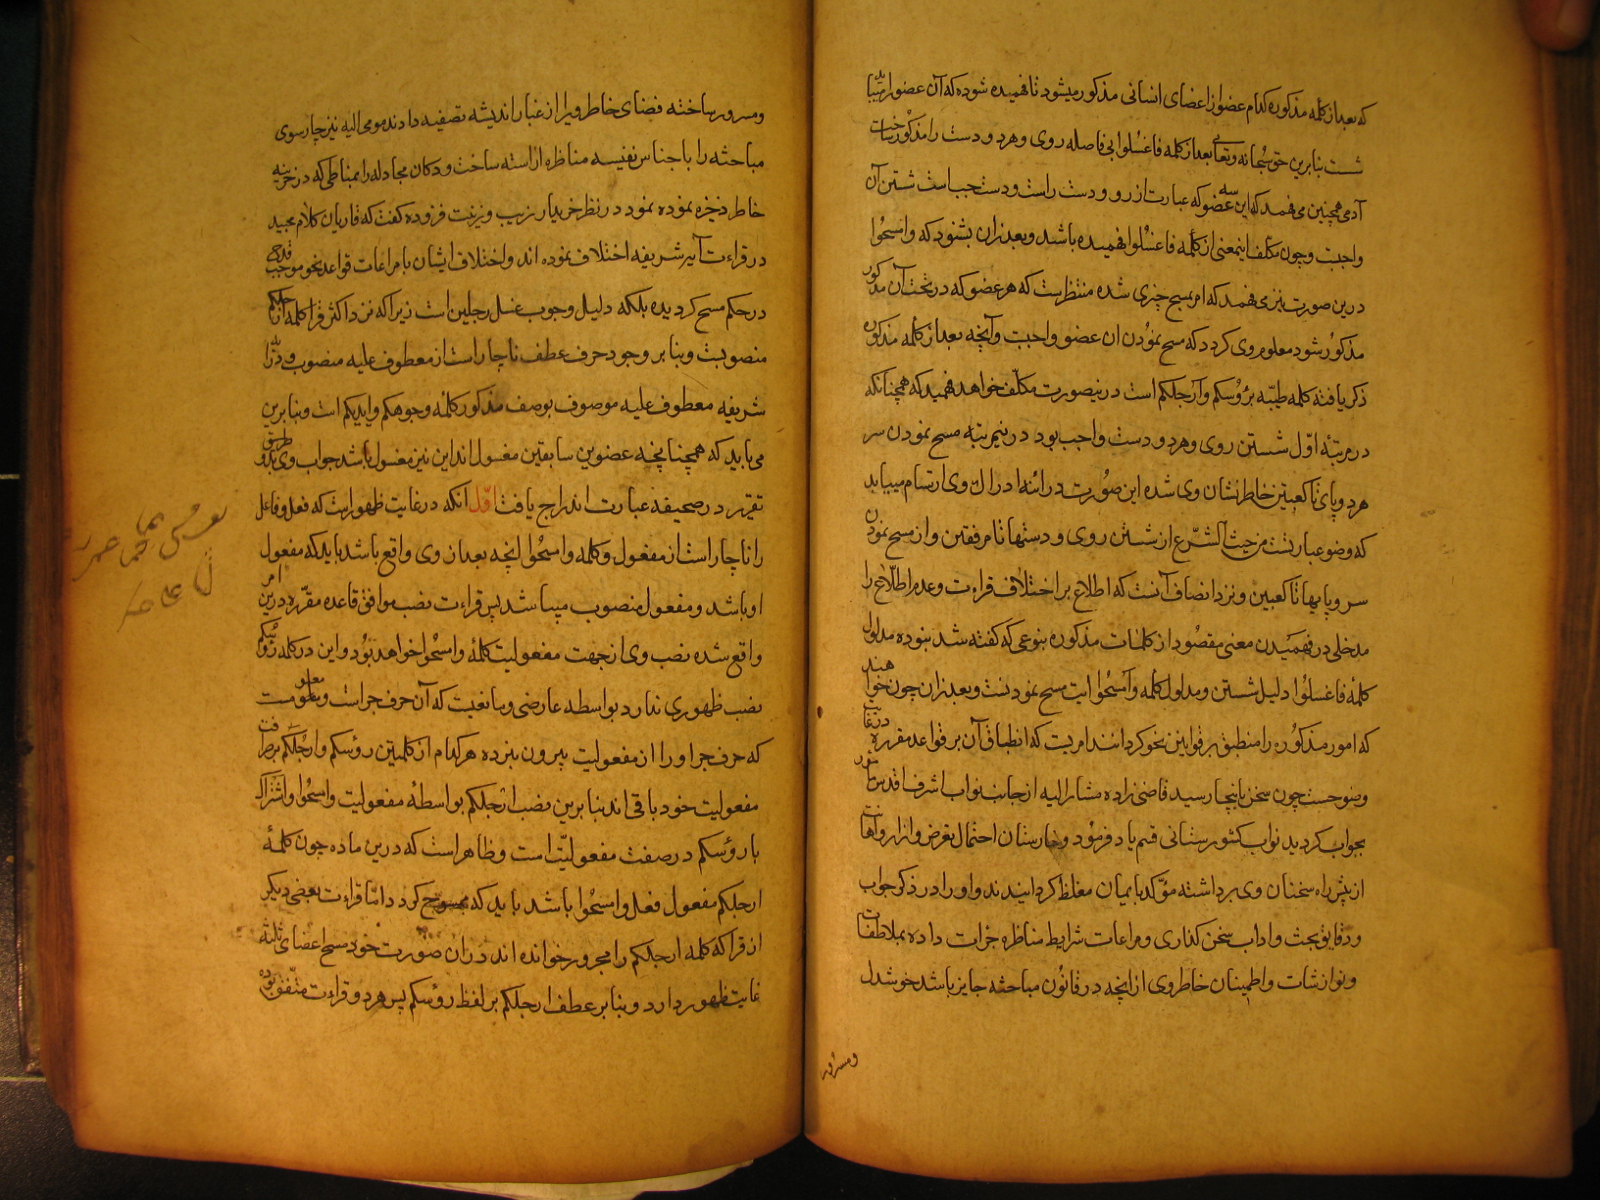 که بعد از کلمه مذکوره کدام عضو از اعضای انسانی مذکور میشود تا فهمیده شود که آن عضو را میباید
شست بنابرین حق سبحانه وتعالی بعد از کلمه فاغسلوا بی فاصله روی وهر دو دست را مذکور ساخت
آدمی همچنین می فهمد که این سه عضو که عبارت از رو و دست راست و دست چپ است شستن آن
واجبست وچون مکلف اینمعنی از کلمه فاغسلوا فهمیده باشد وبعد از ان بشنود که وامسحوا
درین صورت نیز می فهمد که امر بمسح چیزی شده منتظر است که هر عضو که در تحت آن مذکور
مذکور شود معلوم وی کردد که مسح نمودن ان عضو واجبست وآنچه بعد از کلمه مذکوره
ذکر یافته کلمه طیّبه برؤسکم وأرجلکم است درینصورت مکلّف خواهد فهمید که همچنانکه
در مرتبهٔ اوّل شستن روی وهر دو دست واجب بود درنیمرتبه مسح نمودن سر
هر دو پای تا کعبین خاطرنشان وی شده این صورت در ائنهٔ ادراک وی ارتسام مییابد
که وضو عبارتست من حیث الشّرع از شستن روی و دستها تا مرفقین واز مسح نمودن
سر و پایها تا کعبین ونزد انصاف آنست که اطلاع بر اختلاف قراءت وعدم اطلاع را
مدخلی در فهمیدن معنی مقصود از کلمات مذکوره بنوعی که کفته شد نبوده مدلول
کلمهٔ فاغسلوا دلیل شستن ومدلول کلمه وامسحوا ایت مسح نمودنست وبعد از ان چون خواهند
که امور مذکوره را منطبق بر قوانین نحو کردانند امریست که انطباق آن بر قواعد مقرره درغایت
وضوحست چون سخن باینجا رسید قاضی زاده مشار الیه از جانب نواب اشرف اقدس مامور
بجواب کردید نواب کشورستانی قسم یاد فرمود وخارستان احتمال تعرض وازار واهانت
از پیش راه سخنان وی برداشته مؤکد بایمان مغلظ کردانیدند واو را در ذکر جواب
ودقایق بحث واداب سخن کذاری ومراعات شرایط مناظره جرات داده بملاطفات
ونوازشات واطمینان خاطر وی از انچه در قانون مباحثه جایز باشد خوشدل
ومسرور
ومسرور ساخته فضای خاطر ویرا از غبار اندیشه تصفیه دادند مومی الیه نیز چارسوی
مباحثه را باجناس نفیسه مناظره اراسته ساخت ودکان مجادله را بمتاعی که در خزینه
خاطر ذخیره نموده بود در نظر خریدار زیب وزینت فزوده کفت که قاریان کلام مجید
در قراءت آیه شریفه اختلاف نموده اند واختلاف ایشان با مراعات قواعد نحو موجب قدح
در حکم مسح کردیده بلکه دلیل وجوب غسل رجلین است زیرا که نزد اکثر قرا کلمه ارجلکم
منصوبست وبنابر وجود حرف عطف ناچار است از معطوف علیه منصوب ودر آیه
شریفه معطوف علیه موصوف بوصف مذکور کلمهٔ وجوهکم وایدیکم است وبنابرین
می باید که همچنانچه عضوین سابقین مغسول اند این نیز مغسول باشد جواب وی بدو طریق
تقریر در صحیفه عبارت اندراج یافت اوّل آنکه در غایت ظهور است که فعل وفاعل
را ناچار است از مفعول وکلمه وامسحوا انچه بعد از وی واقع باشد باید که مفعول
او باشد ومفعول منصوب میباشد پس قراءت نصب موافق قاعده مقرّره درین امر
واقع شده نصب وی از جهت مفعولیت کلمهٔ وامسحوا خواهد بود واین در کلمه رؤسکم
نصب ظهوری ندارد بواسطه عارضی ومانعیت که آن حرف جر است ومعلومست
که حرف جر او را از مفعولیت بیرون نبرده هر کدام از کلمتین رؤسکم وارجلکم بر صرافت
مفعولیت خود باقی اند بنابرین نصب ارجلکم بواسطهٔ مفعولیت وامسحوا واشتراک
با رؤسکم در صفت مفعولیّت است وظاهر است که درین ماده چون کلمهٔ
ارجلکم مفعول فعل وامسحوا باشد باید که ممسوح کردد امّا قراءت بعضی دیکر
از قرا که کلمه ارجلکم را مجرور خوانده اند در ان صورت خود مسح اعضای ثلثه
غایت ظهور دارد وبنابر عطف ارجلکم بر لفظ رؤسکم پس هر دو قراءت متّفق بوده